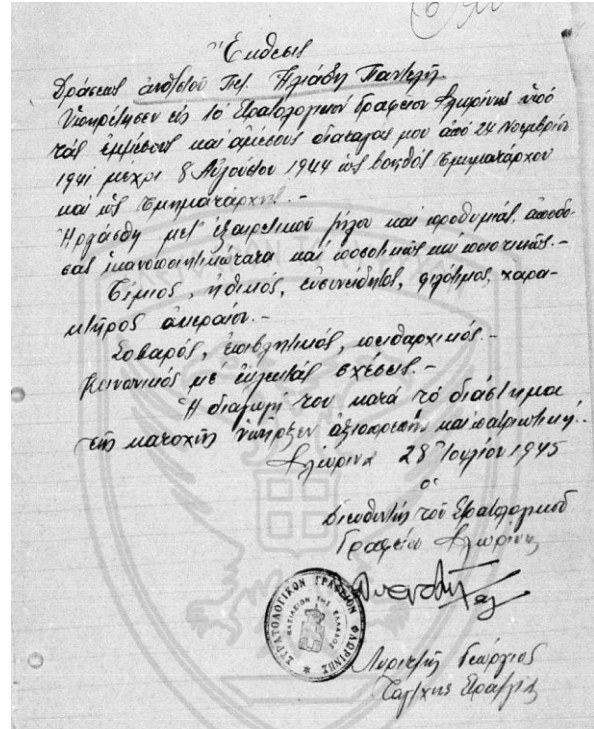 Ἔκθεσις
Δράσεως ἀνθ/στοῦ Πεζ. Ἠλιάδη Παντελῆ.
Ὑπηρέτησεν εἰς τό Στρατολογικόν Γραφεῖον Φλωρίνης ὑπό
τάς ἐμμέσους καί ἀμέσους διαταγάς μου ἀπό 24 Νοεμβρίου
1941 μέχρι 8 Αὐγούστου 1944 ὡς βοηθός τμηματάρχου
καί ὡς τμηματάρχης.-
Ἠργάσθη μετ' ἐξαιρετικοῦ ζήλου καί προθυμίας, ἀποδό-
σας ἱκανοποιητικώτατα καί ποσοτικῶς καί ποιοτικῶς.-
Τίμιος, ἠθικός, εὐσυνείδητος, φιλότιμος, χαρα-
κτῆρος ἀκεραίου.-
Σοβαρός, ἐπιβλητικός, πειθαρχικός.-
Κοινωνικός μέ ἐκλεκτάς σχέσεις.-
Ἡ διαγωγή του κατά τό διάστημα
τῆς κατοχῆς ὑπῆρξεν ἀξιοπρεπής καί πατριωτική.-
Φλώρινα 28 Ἰουλίου 1945
ὁ
Διευθυντής τοῦ Στρατολογικοῦ
Γραφείου Φλωρίνης
ΣΤΡΑΤΟΛΟΓΙΚΟΝ ΓΡΑΦΕΙΟΝ ΦΛΩΡΙΝΗΣ
ΒΑΣΙΛΕΙΟΝ ΤΗΣ ΕΛΛΑΔΟΣ
Γεώργιος
Ταγ/χης Στρατ/κός